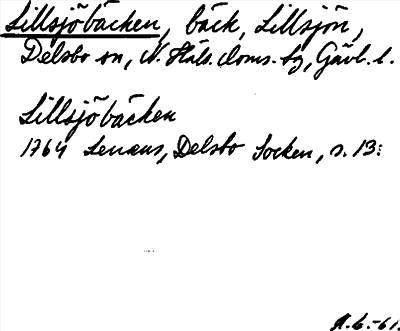 Lillsjöbäcken, bäck, Lillsjön,
Delsbo sn, N. Häls. doms. sg, Gävl. l.
Lillsjöbäcken
1764 Lenæus, Delsbo Socken, s. 13:
-61.